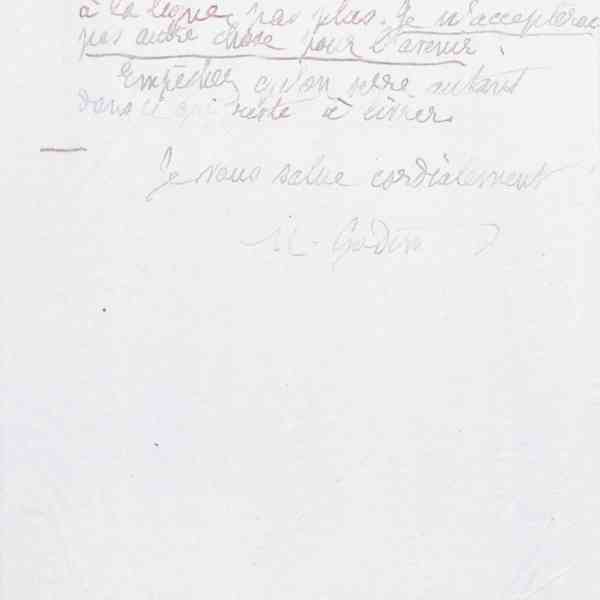 à la ligne, pas plus. Je n'accepterai
pas autre chose pour l'avenir.
Empêchez qu'on serre autant
dans ce qui reste à livrer.
Je vous salue cordialement
Godin